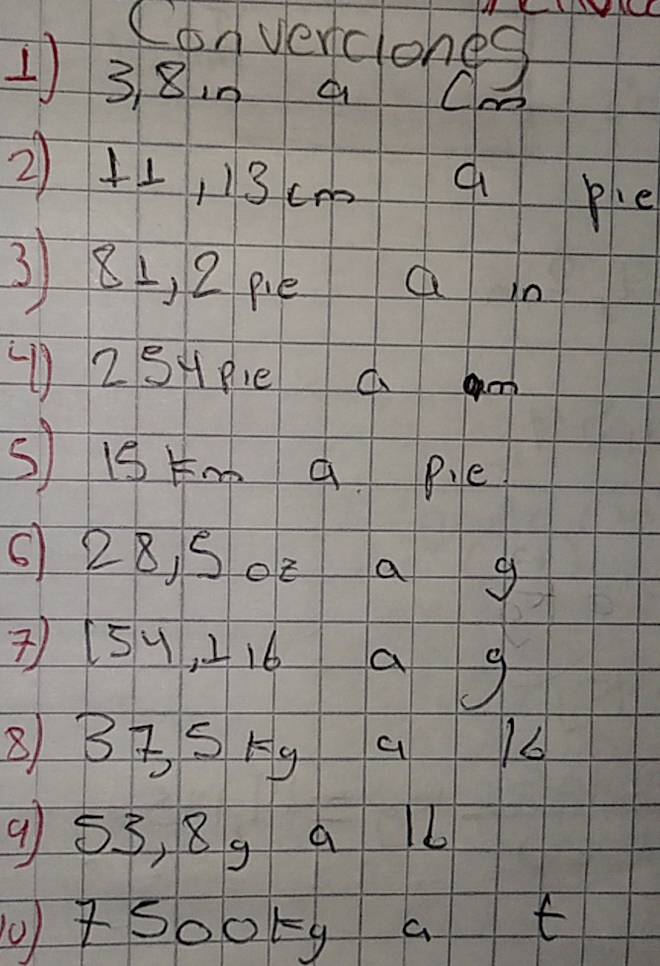 Converciones
1) 3,8 in a cm
2) 11,13 cm a pie
3) 81,2 pie a in
4) 254 pie a m
5) 15 km a pie
6) 28,5 oz a g
7) 154,1 lb a g
8) 37,5 kg a lb
9) 53,8 g a lb
10) 7500 kg a t